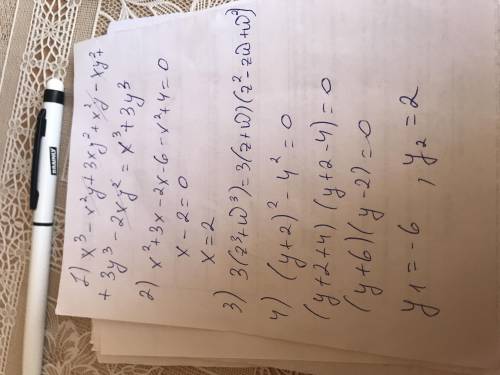 1) x³ - x²y + 3xy² + x²y - xy² +
+ 3y³ - 2xy² = x³ + 3y³
2) x² + 3x - 2x - 6 - x² + 4 = 0
x - 2 = 0
x = 2
3) 3(z³ + ω³) = 3(z + ω)(z² - zω + ω²)
4) (y + 2)² - 4² = 0
(y + 2 + 4)(y + 2 - 4) = 0
(y + 6)(y - 2) = 0
y₁ = -6 , y₂ = 2